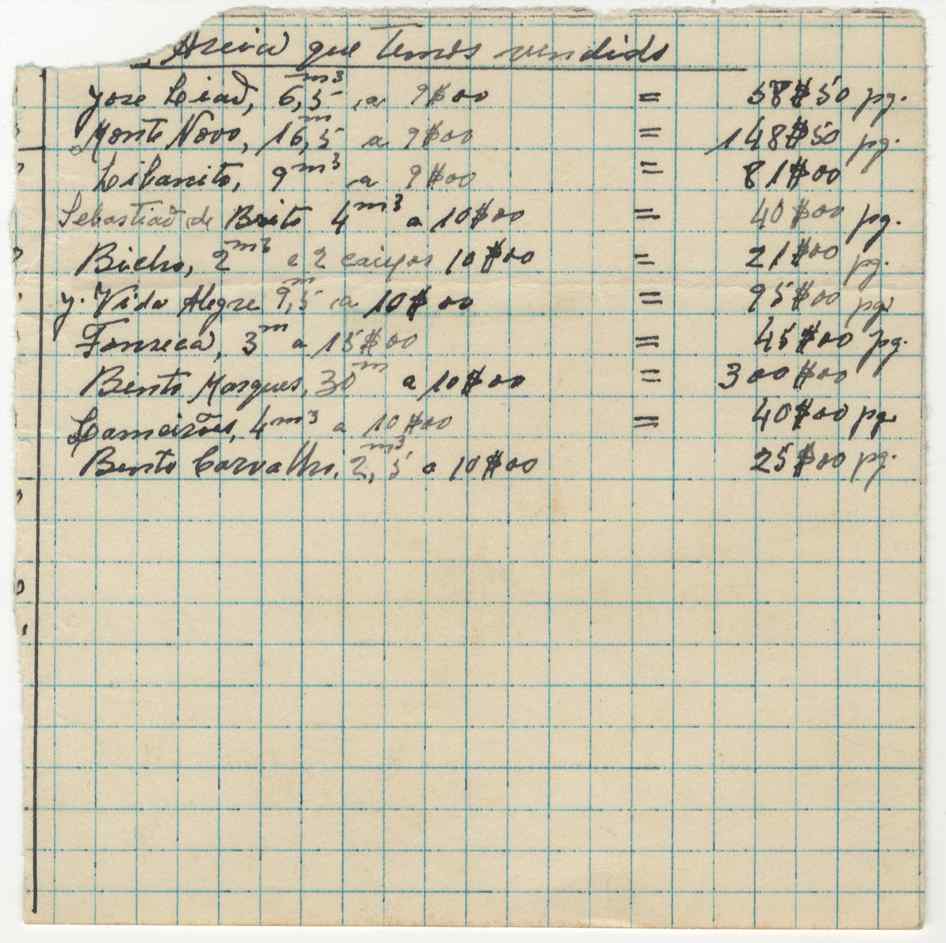 Areia que temos vendido
José Lião, 6,5 m3 a 9$00 = 58$50 pg.
Monte Novo, 16,5 m a 9$00 = 148$50 pg.
Libanito, 9 m3 a 9$00 = 81$00
Sebastião de Brito 4 m3 a 10$00 = 40$00 pg.
Bicho, 2 m3 e 2 caixas 10$00 = 21$00 pg.
J. Vida Alegre 9,5 m a 10$00 = 95$00 pg.
Fonseca, 3 m a 15$00 = 45$00 pg.
Bento Marques, 30 m a 10$00 = 300$00
Lameirões, 4 m3 a 10$00 = 40$00 pg
Bento Carvalho, 2,5 m3 a 10$00 25$00 pg.